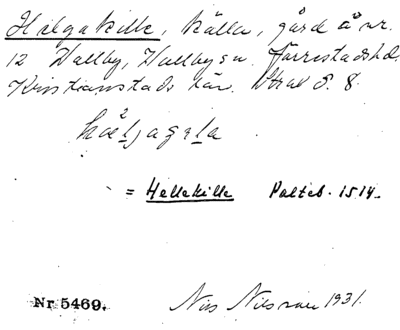 Helgakille, källa, gård å nr.
12 Vallby, Vallby sn. Järrestads hd.
Kristianstads län. Utal S. 8.
= Hellekille Palteb. 1514.
Nr 5469. Nils Nilsson 1931.